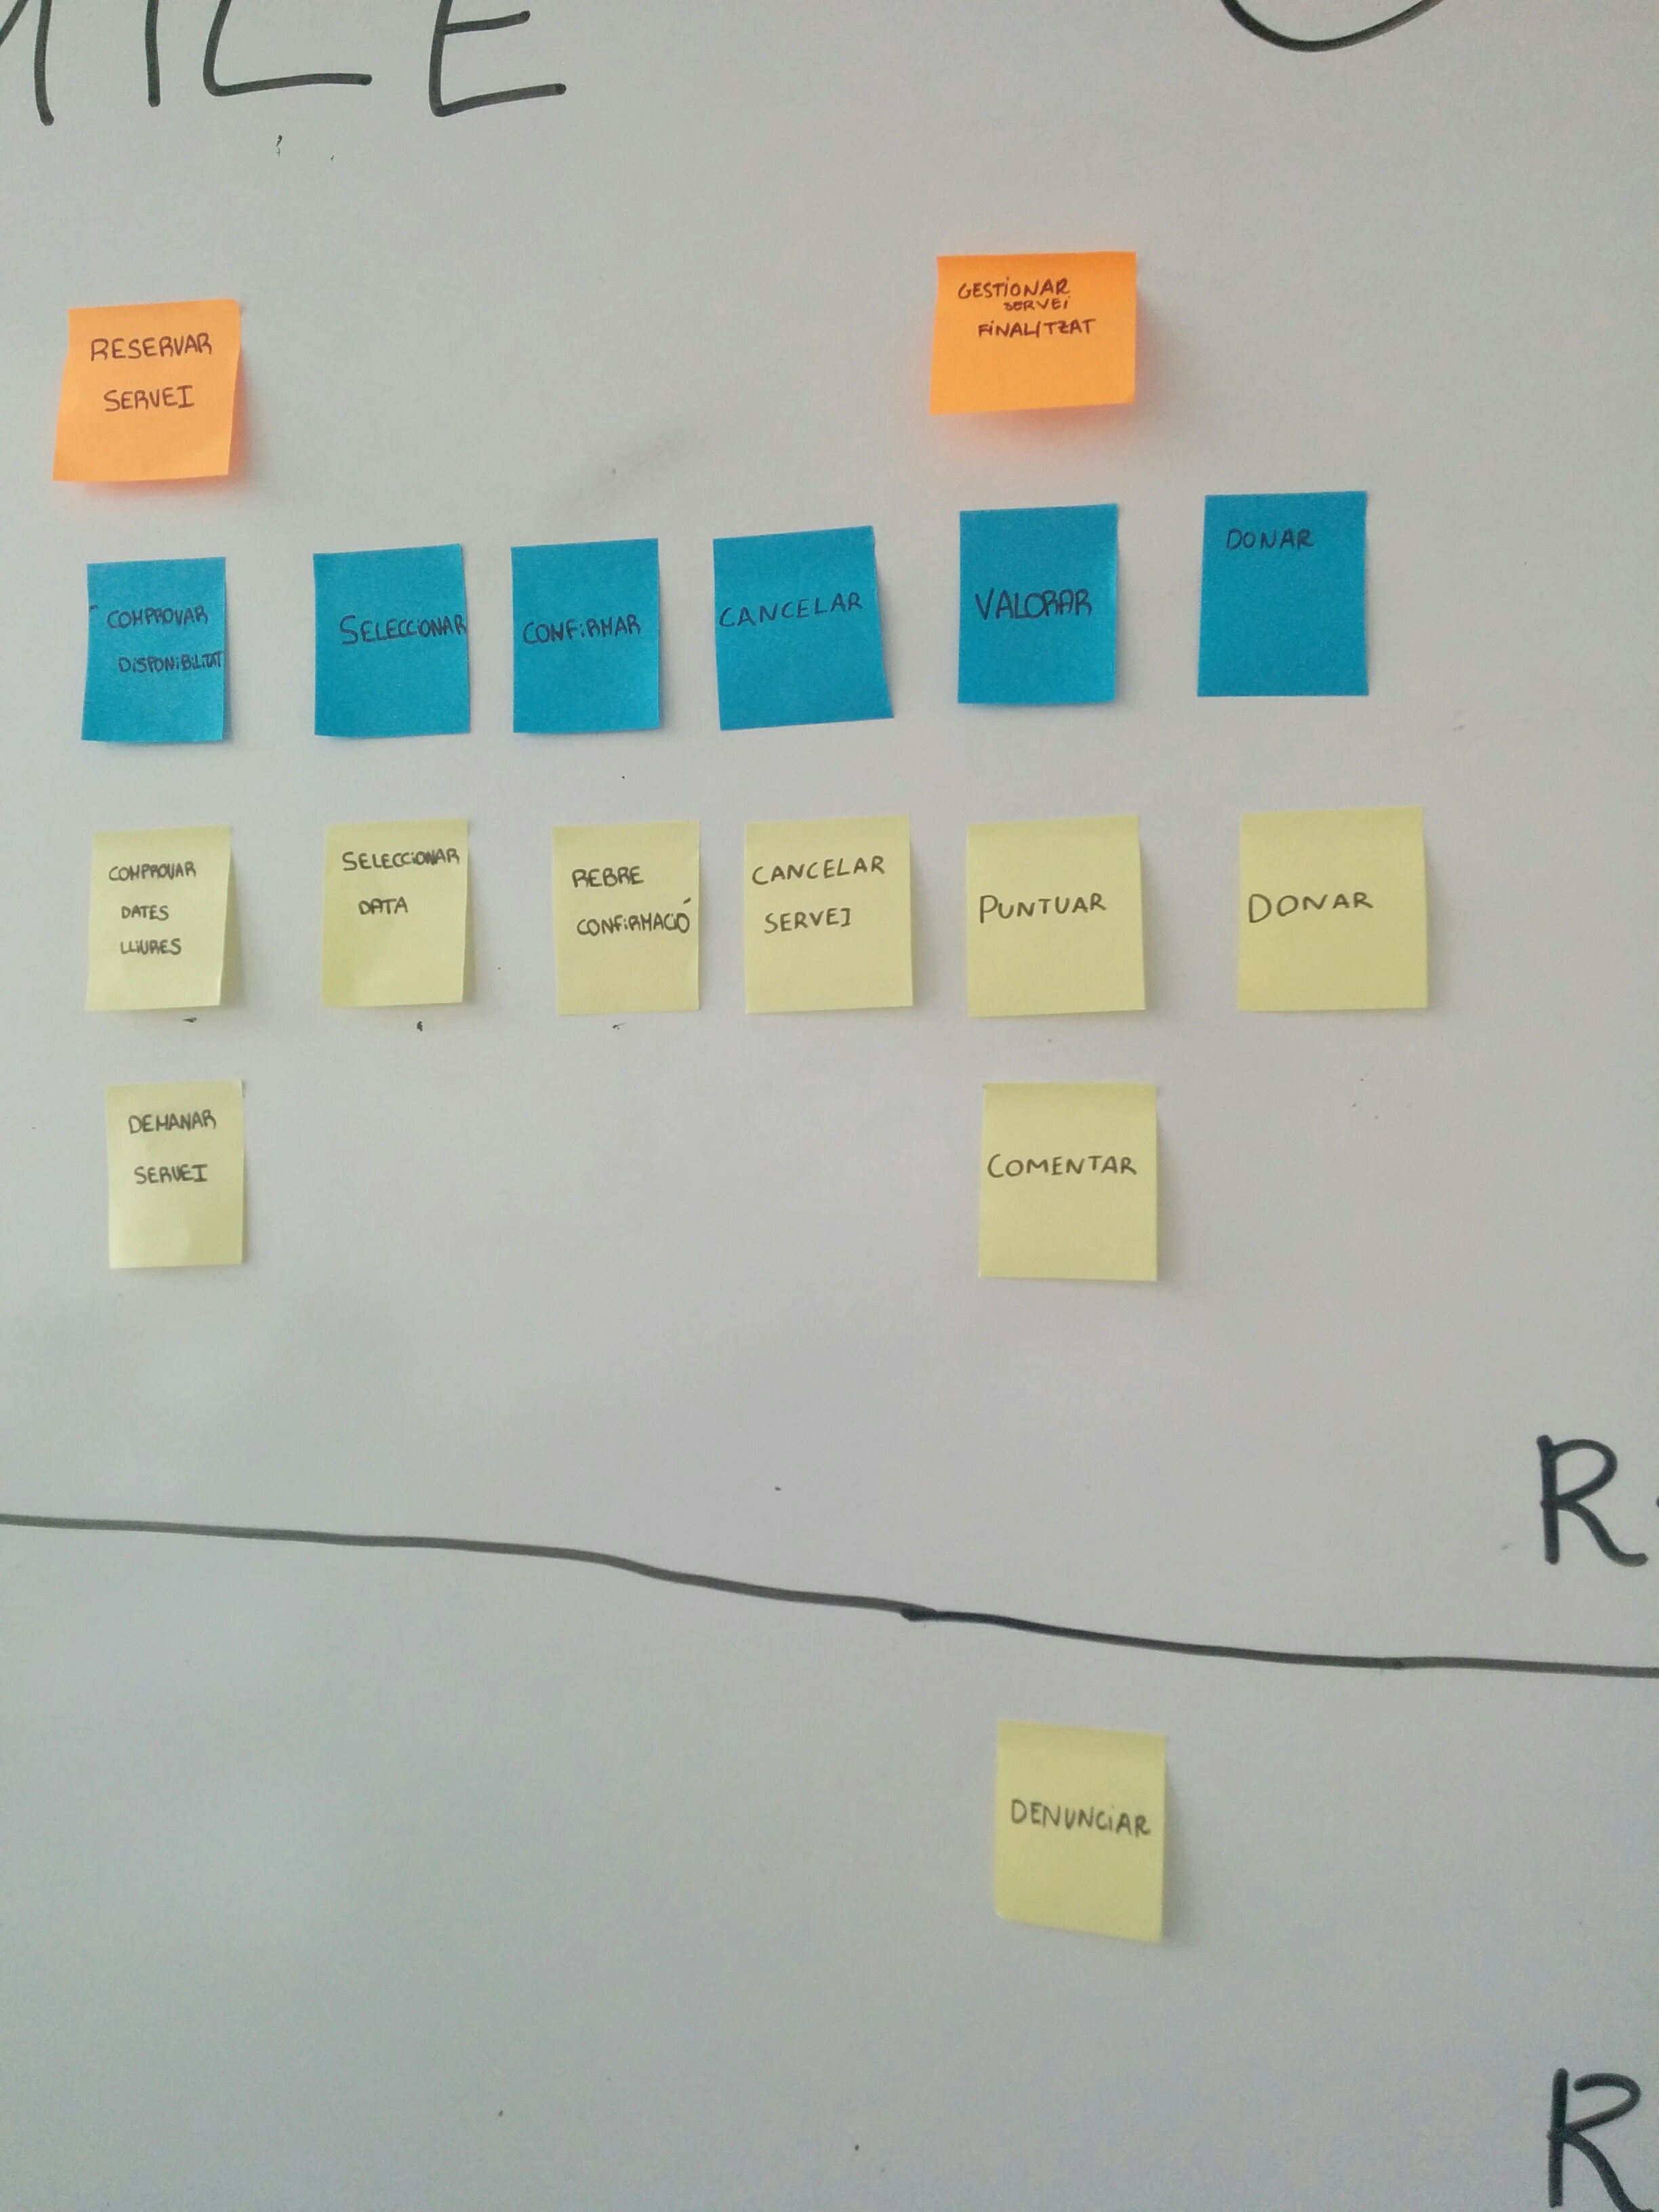 ILE
RESERVAR
SERVEI
GESTIONAR
SERVEI
FINALITZAT
COMPROVAR
DISPONIBILITAT
SELECCIONAR
CONFIRMAR
CANCELAR
VALORAR
DONAR
COMPROVAR
DATES
LLIURES
SELECCIONAR
DATA
REBRE
CONFIRMACIÓ
CANCELAR
SERVEI
PUNTUAR
DONAR
DEMANAR
SERVEI
COMENTAR
R
DENUNCIAR
R